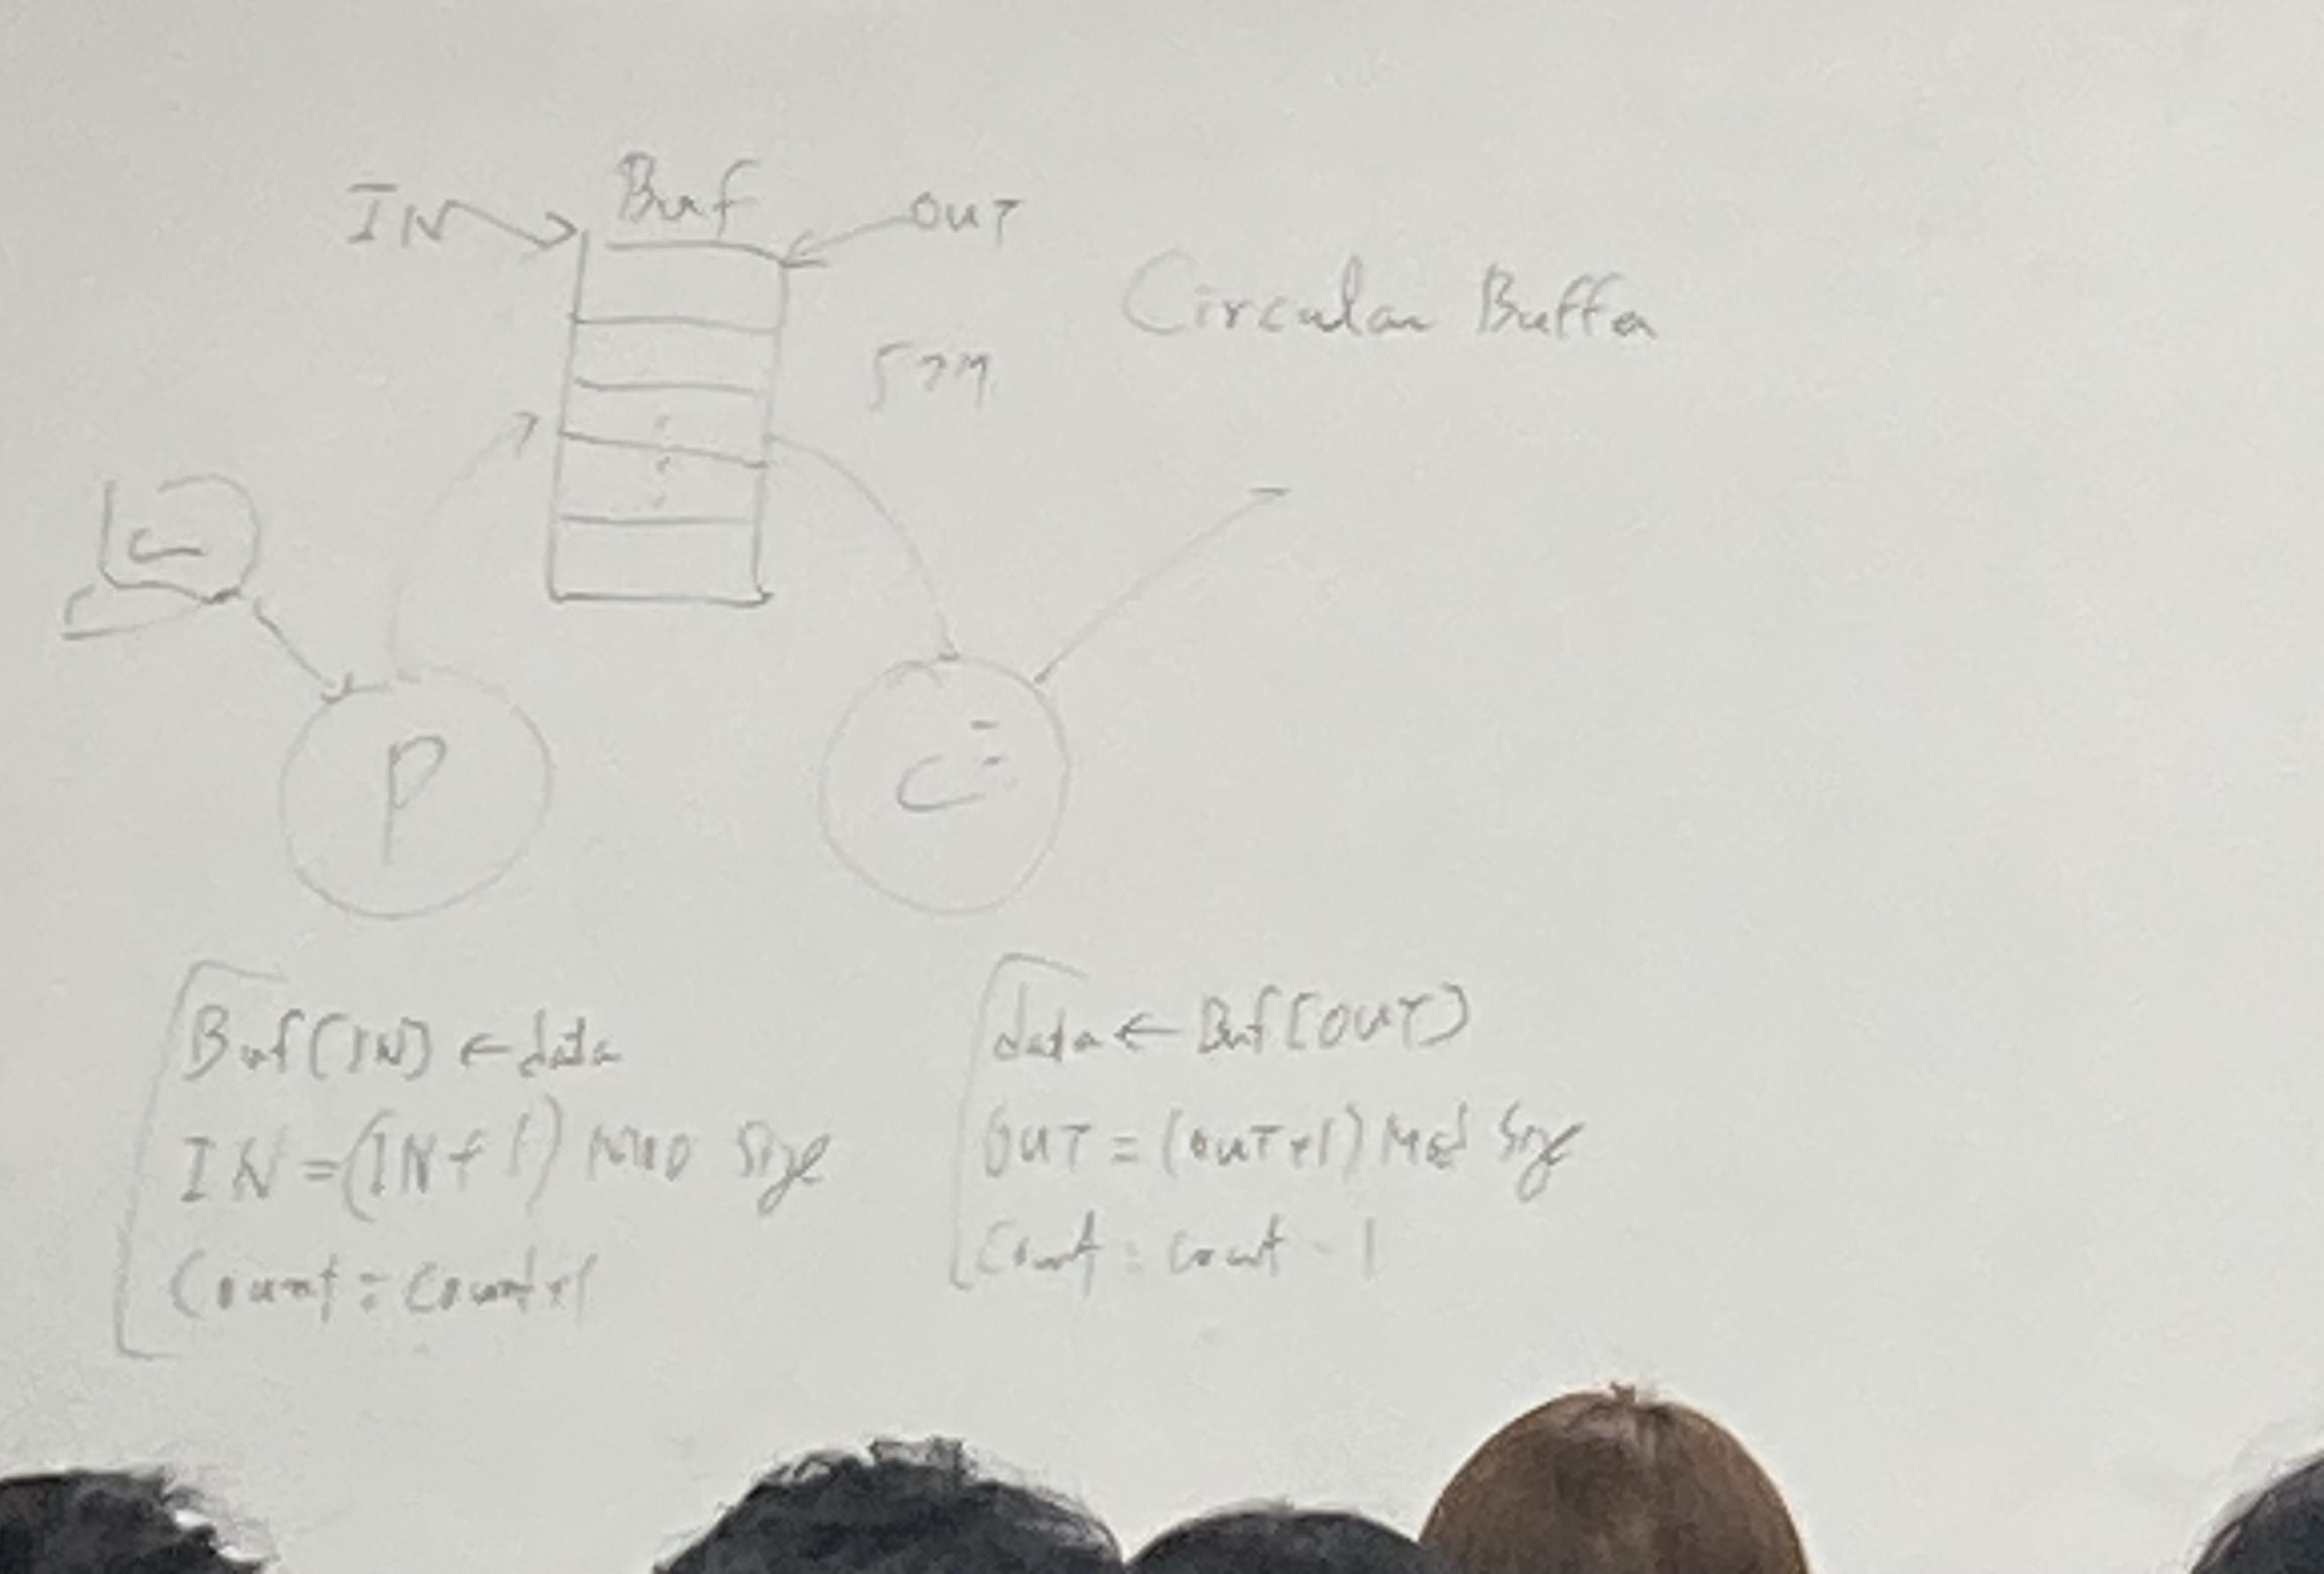 Buf
IN
OUT
Circular Buffer
P
C
Buf[IN] ← data
IN = (IN+1) MOD Size
Count = Count+1
data ← Buf[OUT]
OUT = (OUT+1) Mod Size
Count = Count - 1